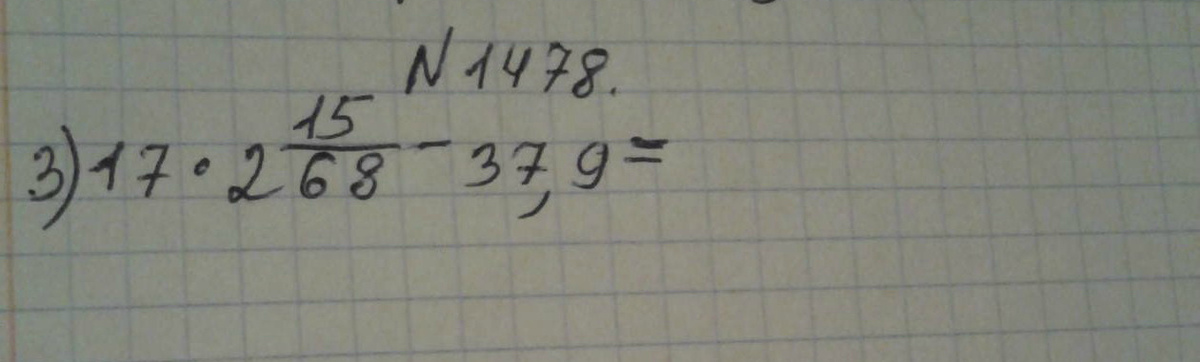 N 1478.
3) 17 · 2 15/68 - 37,9 =